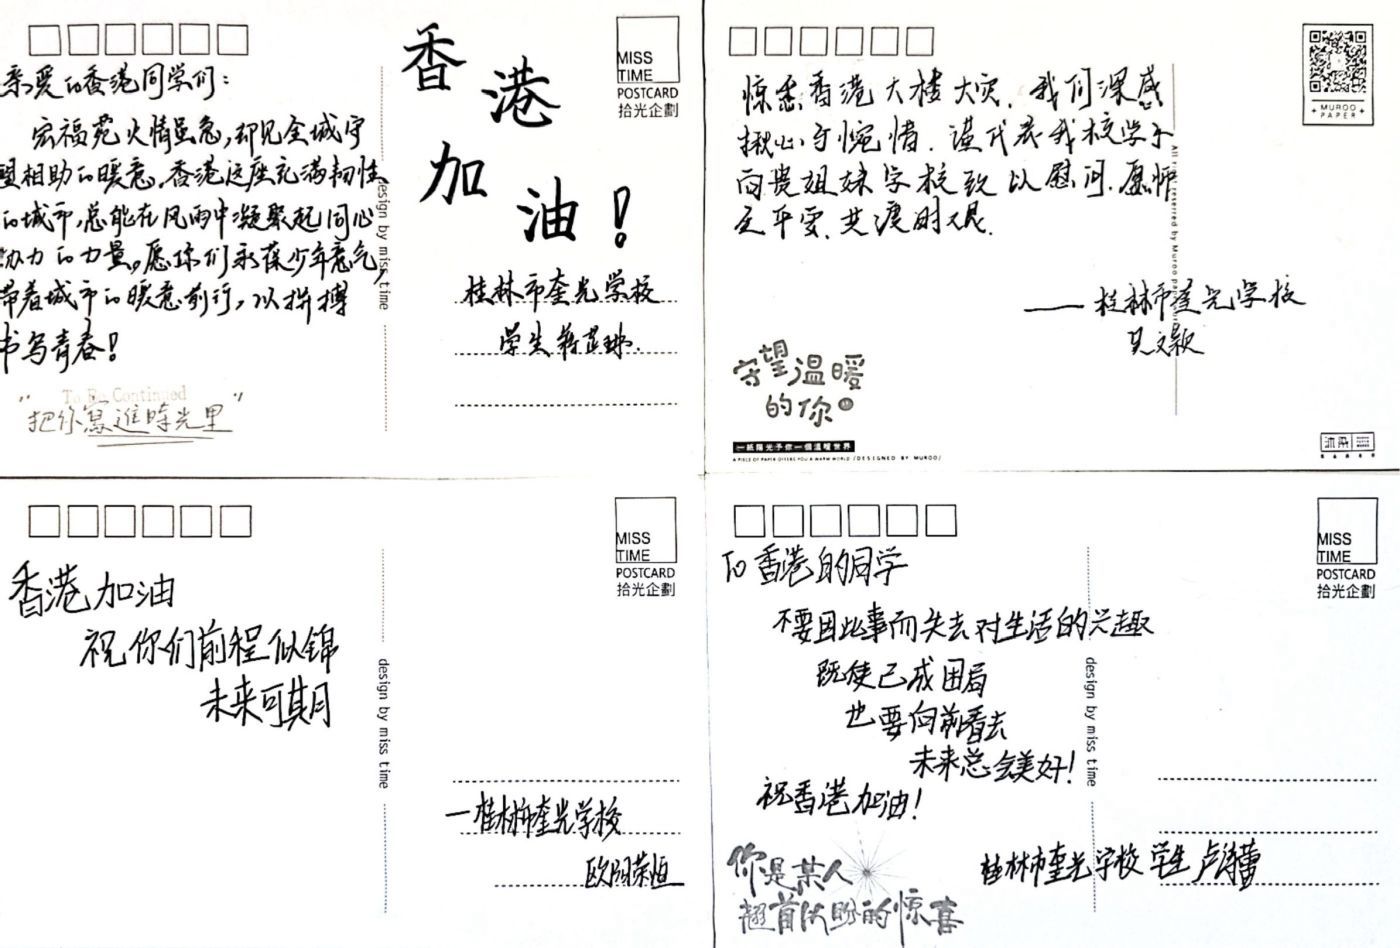 亲爱的香港同学们：
宏福苑火情虽急，却见全城守
望相助的暖意。香港这座充满韧性
的城市，总能在风雨中凝聚起同心
协力的力量。愿你们永葆少年意气，
带着城市的暖意前行，以拼搏
书写青春！
To Be Continued
"把你寫進時光里"
design by miss time
香港
加油！
MISS
TIME
POSTCARD
拾光企劃
桂林市奎光学校
学生 蒋芷琳.
惊悉香港大楼大灾，我们深感
揪心与惋惜。谨代表我校学子
向贵姐妹学校致以慰问，愿师
生平安，共渡时艰.
——桂林市奎光学校
吴文颖
MUROO
PAPER
守望温暖
的你
一紙陽光予你一個溫暖世界
A PIECE OF PAPER OFFERS YOU A WARM WORLD /DESIGNED BY MUROO/
香港加油
祝你们前程似锦
未来可期
design by miss time
MISS
TIME
POSTCARD
拾光企劃
—桂林市奎光学校
欧阳荣恒
To 香港的同学
不要因此事而失去对生活的兴趣
既使已成困局
也要向前看去
未来总会美好！
祝香港加油！
design by miss time
MISS
TIME
POSTCARD
拾光企劃
桂林市奎光学校 学生 卢
你是某人
翹首以盼的惊喜